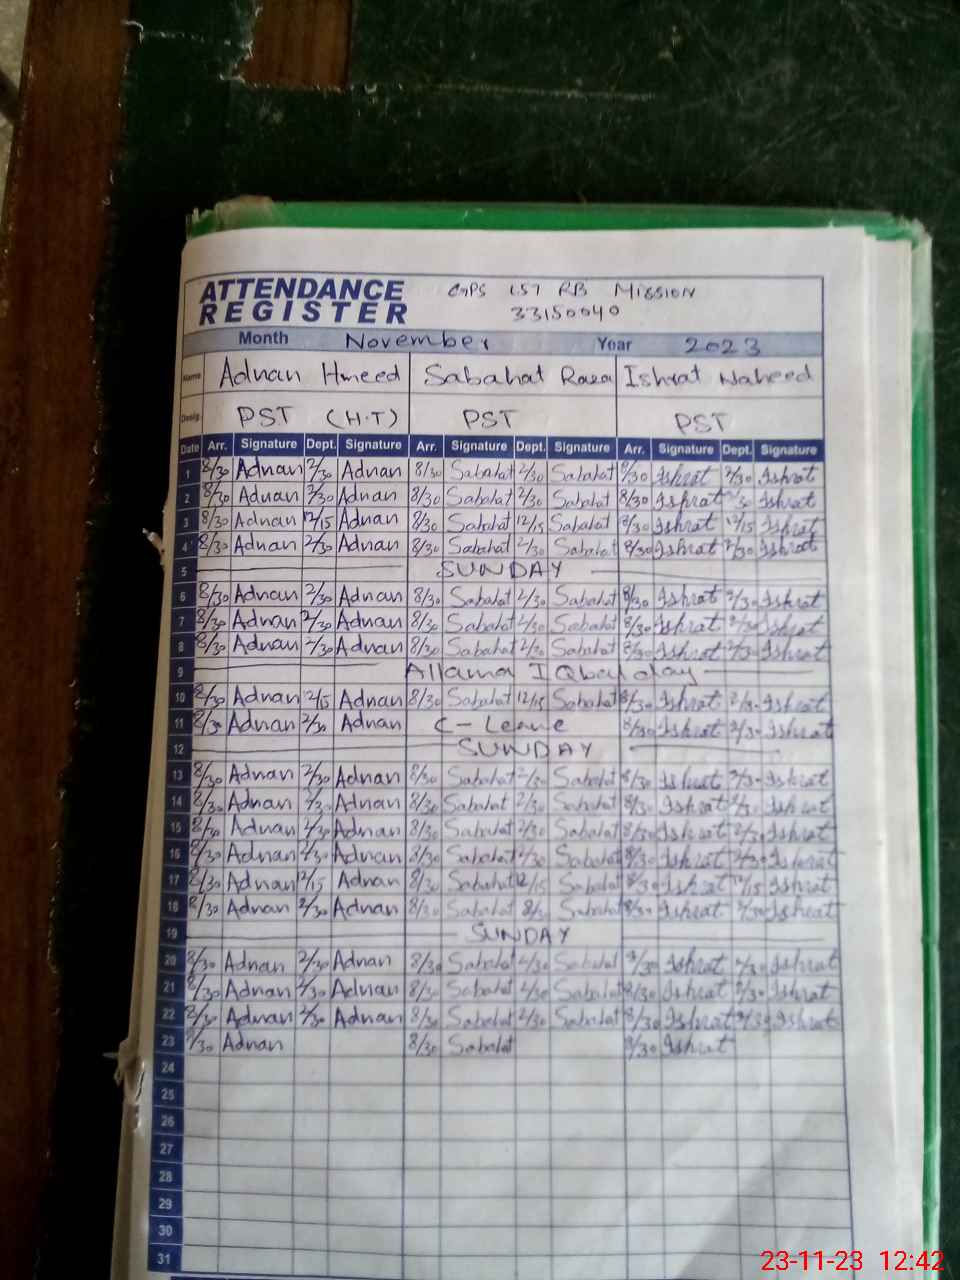 ATTENDANCE REGISTER
GPS 157 RB MISSION
33150040
Month November Year 2023
Name Adnan Hmeed Sabahat Raza Ishrat Naheed
Desig. PST (H.T) PST PST
Date Arr. Signature Dept. Signature Arr. Signature Dept. Signature Arr. Signature Dept. Signature
1 8/30 Adnan 2/30 Adnan 8/30 Sabahat 2/30 Sabahat 8/30 Ishrat 2/30 Ishrat
2 8/30 Adnan 2/30 Adnan 8/30 Sabahat 2/30 Sabahat 8/30 Ishrat 2/30 Ishrat
3 8/30 Adnan 12/15 Adnan 8/30 Sabahat 12/15 Sabahat 8/30 Ishrat 12/15 Ishrat
4 8/30 Adnan 2/30 Adnan 8/30 Sabahat 2/30 Sabahat 8/30 Ishrat 2/30 Ishrat
5 SUNDAY
6 8/30 Adnan 2/30 Adnan 8/30 Sabahat 2/30 Sabahat 8/30 Ishrat 2/30 Ishrat
7 8/30 Adnan 2/30 Adnan 8/30 Sabahat 2/30 Sabahat 8/30 Ishrat 2/30 Ishrat
8 8/30 Adnan 2/30 Adnan 8/30 Sabahat 2/30 Sabahat 8/30 Ishrat 2/30 Ishrat
9 Allama IQbal day
10 8/30 Adnan 12/15 Adnan 8/30 Sabahat 12/15 Sabahat 8/30 Ishrat 2/30 Ishrat
11 8/30 Adnan 2/30 Adnan C - Leave 8/30 Ishrat 2/30 Ishrat
12 SUNDAY
13 8/30 Adnan 2/30 Adnan 8/30 Sabahat 2/30 Sabahat 8/30 Ishrat 2/30 Ishrat
14 8/30 Adnan 2/30 Adnan 8/30 Sabahat 2/30 Sabahat 8/30 Ishrat 2/30 Ishrat
15 8/30 Adnan 2/30 Adnan 8/30 Sabahat 2/30 Sabahat 8/30 Ishrat 2/30 Ishrat
16 8/30 Adnan 2/30 Adnan 8/30 Sabahat 2/30 Sabahat 8/30 Ishrat 2/30 Ishrat
17 8/30 Adnan 12/15 Adnan 8/30 Sabahat 12/15 Sabahat 8/30 Ishrat 12/15 Ishrat
18 8/30 Adnan 2/30 Adnan 8/30 Sabahat 8/30 Sabahat 8/30 Ishrat 2/30 Ishrat
19 SUNDAY
20 8/30 Adnan 2/30 Adnan 8/30 Sabahat 2/30 Sabahat 8/30 Ishrat 2/30 Ishrat
21 8/30 Adnan 2/30 Adnan 8/30 Sabahat 2/30 Sabahat 8/30 Ishrat 2/30 Ishrat
22 8/30 Adnan 2/30 Adnan 8/30 Sabahat 2/30 Sabahat 8/30 Ishrat 2/30 Ishrat
23 8/30 Adnan 8/30 Sabahat 8/30 Ishrat
24
25
26
27
28
29
30
31
23-11-23 12:42